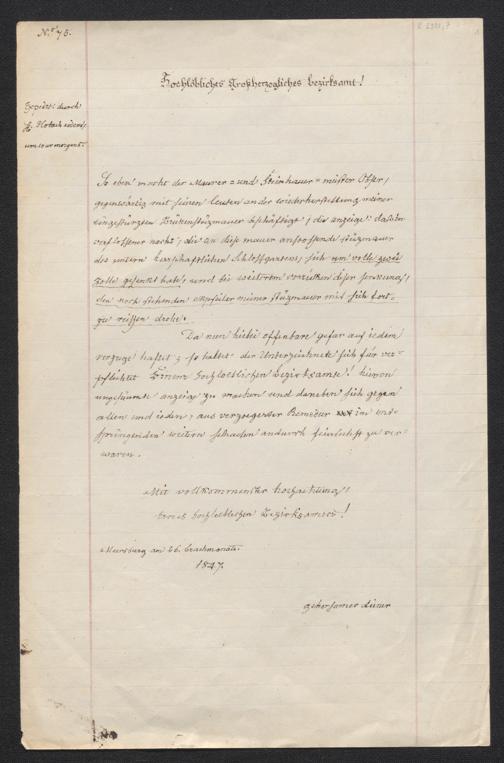 N.º 75.
Hochlöbliches Großherzogliches Bezirksamt!
Expedirt durch
um 10 ur morgens.
So eben macht der Maurer- und Steinhauer-meister Obser,
gegenwärtig mit seinen Leuten an der wiederherstellung meiner
eingestürzten Brükenstüzmauer beschäftigt, die anzeige: daß in
verflossener nacht, die an diese mauer anstossende stüzmauer
des untern herrschaftlichen Schlossgartens, sich um volle zwei
Zolle gesenkt habe, und bei weiterem vorrüken dieser senkung,
den noch stehenden meiner stüzmauer mit sich fort-
zu reissen drohe.
Da nun hiebei offenbare gefar auf jedem
verzuge haftet; so haltet der Unterzeichnete sich für ver-
pflichtet Einem hochloeblichen Bezirksamte! hievon
anzeige zu machen und daneben sich gegen
allen und jeden, aus verzoegerter Remedur im ent-
springenden weitern schaden andurch feierlichst zu ver-
waren.
Mit vollkommenster hochachtung,
hochloeblichen Bezirksamtes!
Mersburg am 26. brachmonats
1847.
gehorsamer diener